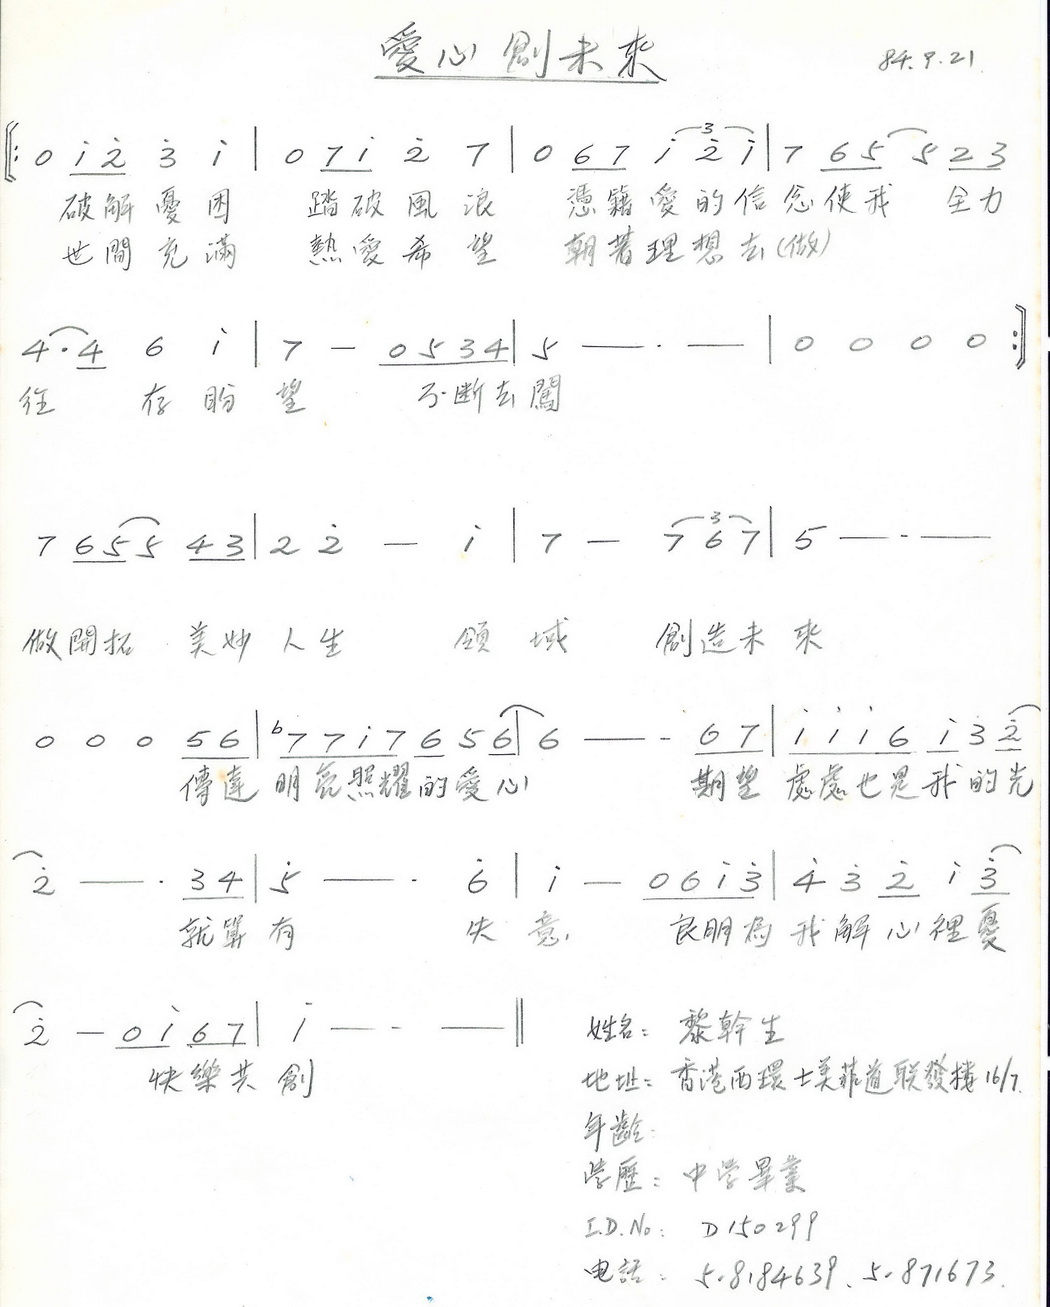 愛心創未來
84.9.21
𝄆 0 i̲ 2̲̇ 3̇ i | 0 7̲ i̲ 2̇ 7 | 0 6̲ 7̲ i 2̇ i | 7 6̲ 5̲ 5 2̲ 3̲
破解憂困 踏破風浪 憑藉愛的信念使我 全力
世間充滿 熱愛希望 朝著理想去(做)
4 · 4̲ 6 i | 7 — 0̲ 5̲ 3̲ 4̲ | 5 — · — | 0 0 0 0 𝄇
往 存盼望 不斷去闖
7 6̲ 5̲ 5 4̲ 3̲ | 2 2̇ — i | 7 — 7 6 7 | 5 — · —
做開拓 美妙人生 領域 創造未來
0 0 0 5̲ 6̲ | ♭7̲ 7̲ i̲ 7̲ 6̲ 5 6̲ | 6 — · 6̲ 7̲ | i̲ i̲ i̲ 6̲ i̲ 3 2̲̇
傳達 明亮照耀的愛心 期望 處處也是我的光
2̇ — · 3̲ 4̲ | 5̇ — · 6̇ | i — 0̲ 6̲ i̲ 3̲̇ | 4̇ 3̇ 2̲̇ i 3̲̇
就算有 失意, 良朋為我解心裡憂
2̇ — 0̲ i̲ 6̲ 7̲ | i — - — ‖
快樂共創
姓名: 黎幹生
地址: 香港西環士美菲道联發樓16/7.
年齡:
学歷: 中学畢業
I.D.No: D150299
电話: 5.8184639、5.871673.